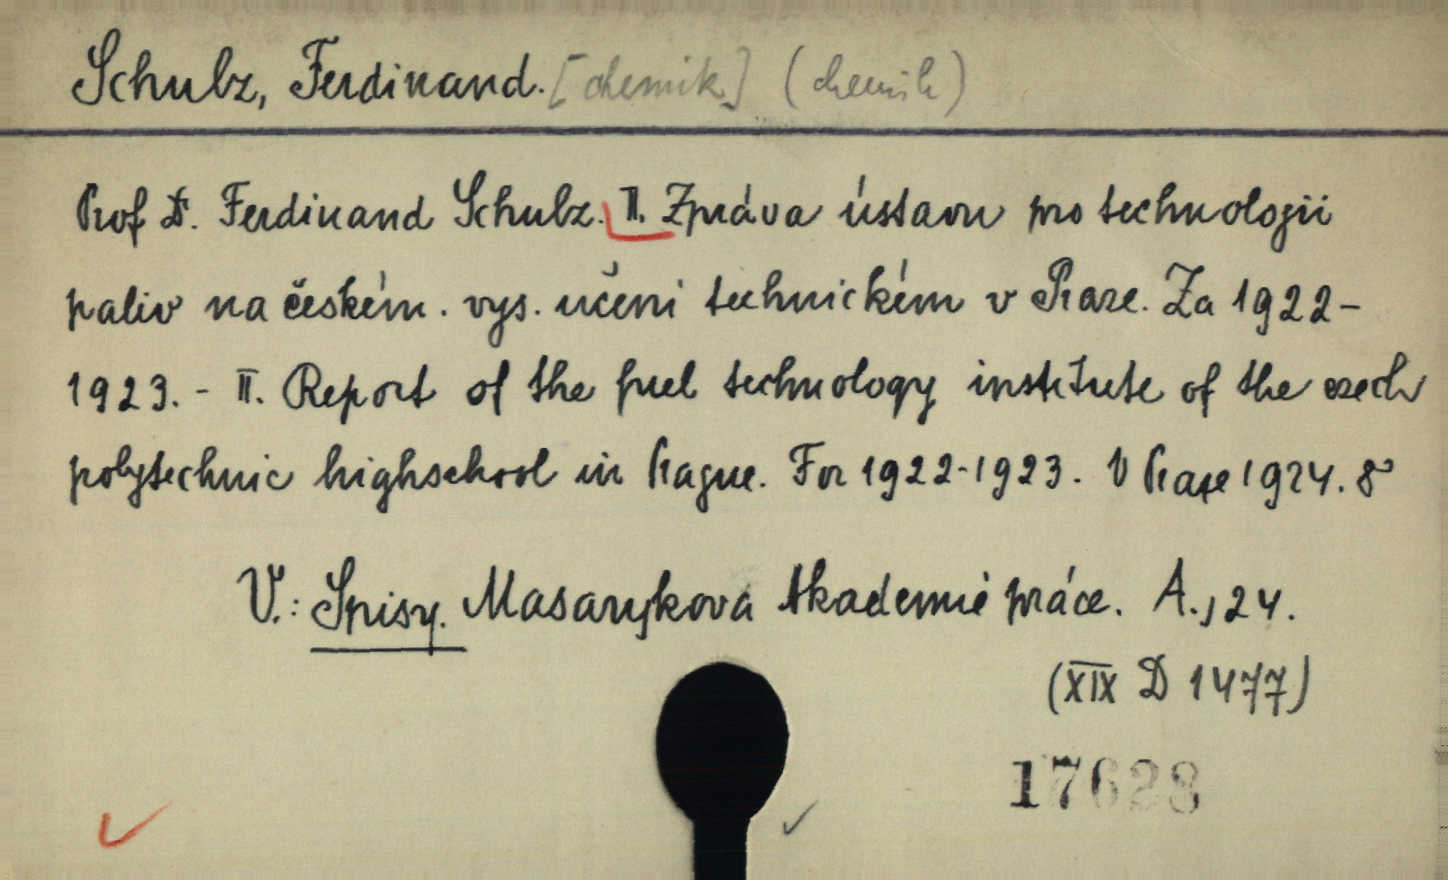 Schulz, Ferdinand. [chemik] (chemik)
Prof Dr. Ferdinand Schulz. II. Zpráva ústavu pro technologii
paliv na českém. vys. učení technickém v Praze. Za 1922-
1923. - II. Report of the fuel technology institute of the czech
polytechnic highschool in Prague. For 1922-1923. V Praze 1924. 8°
V.: Spisy. Masarykova Akademie práce. A., 24.
(XIX D 1477)
17623